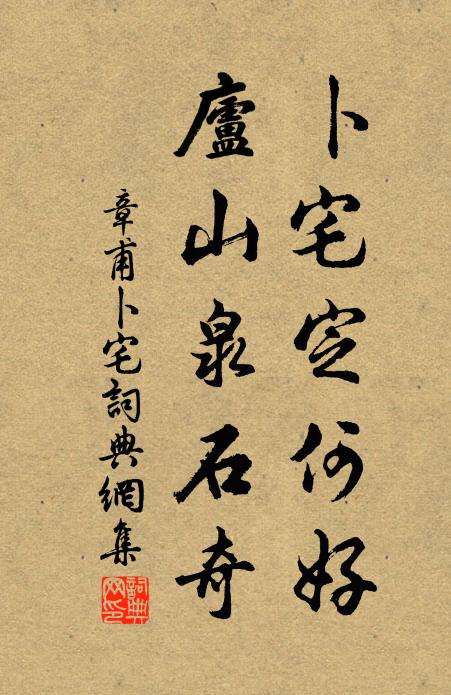 卜宅定何好
廬山泉石奇
章甫卜宅詞典網集
詞典网印